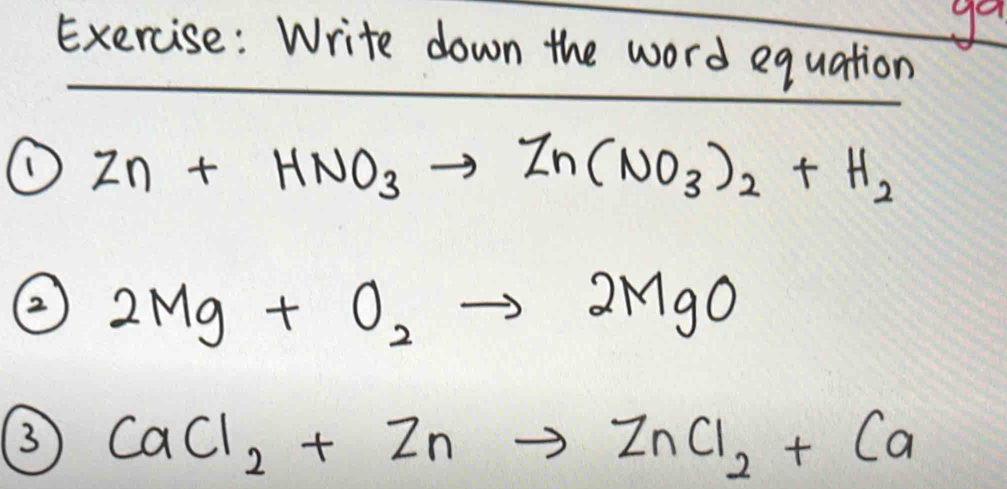 ga
Exercise: Write down the word equation
① Zn + HNO₃ → Zn(NO₃)₂ + H₂
② 2Mg + O₂ → 2MgO
③ CaCl₂ + Zn → ZnCl₂ + Ca